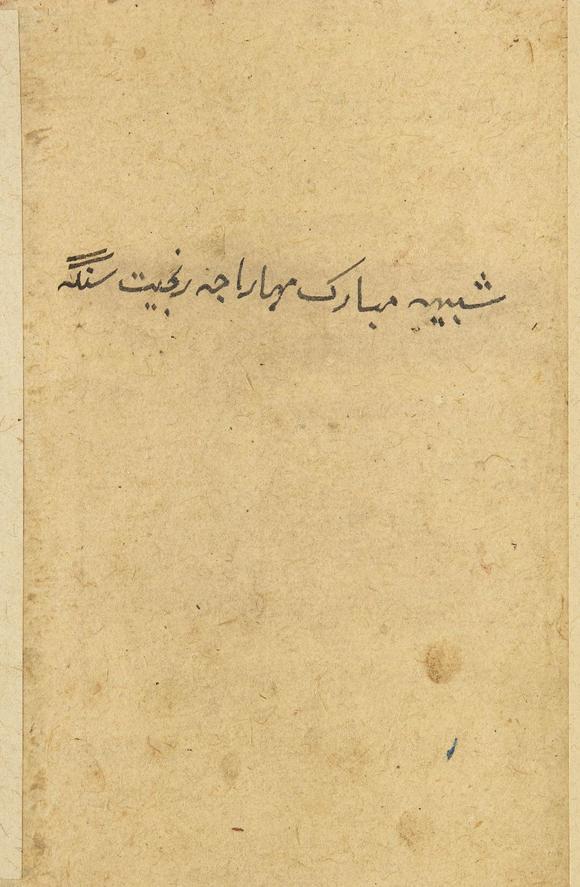 شبیهہ مبارک مهاراجه رنجیت سنگهہ